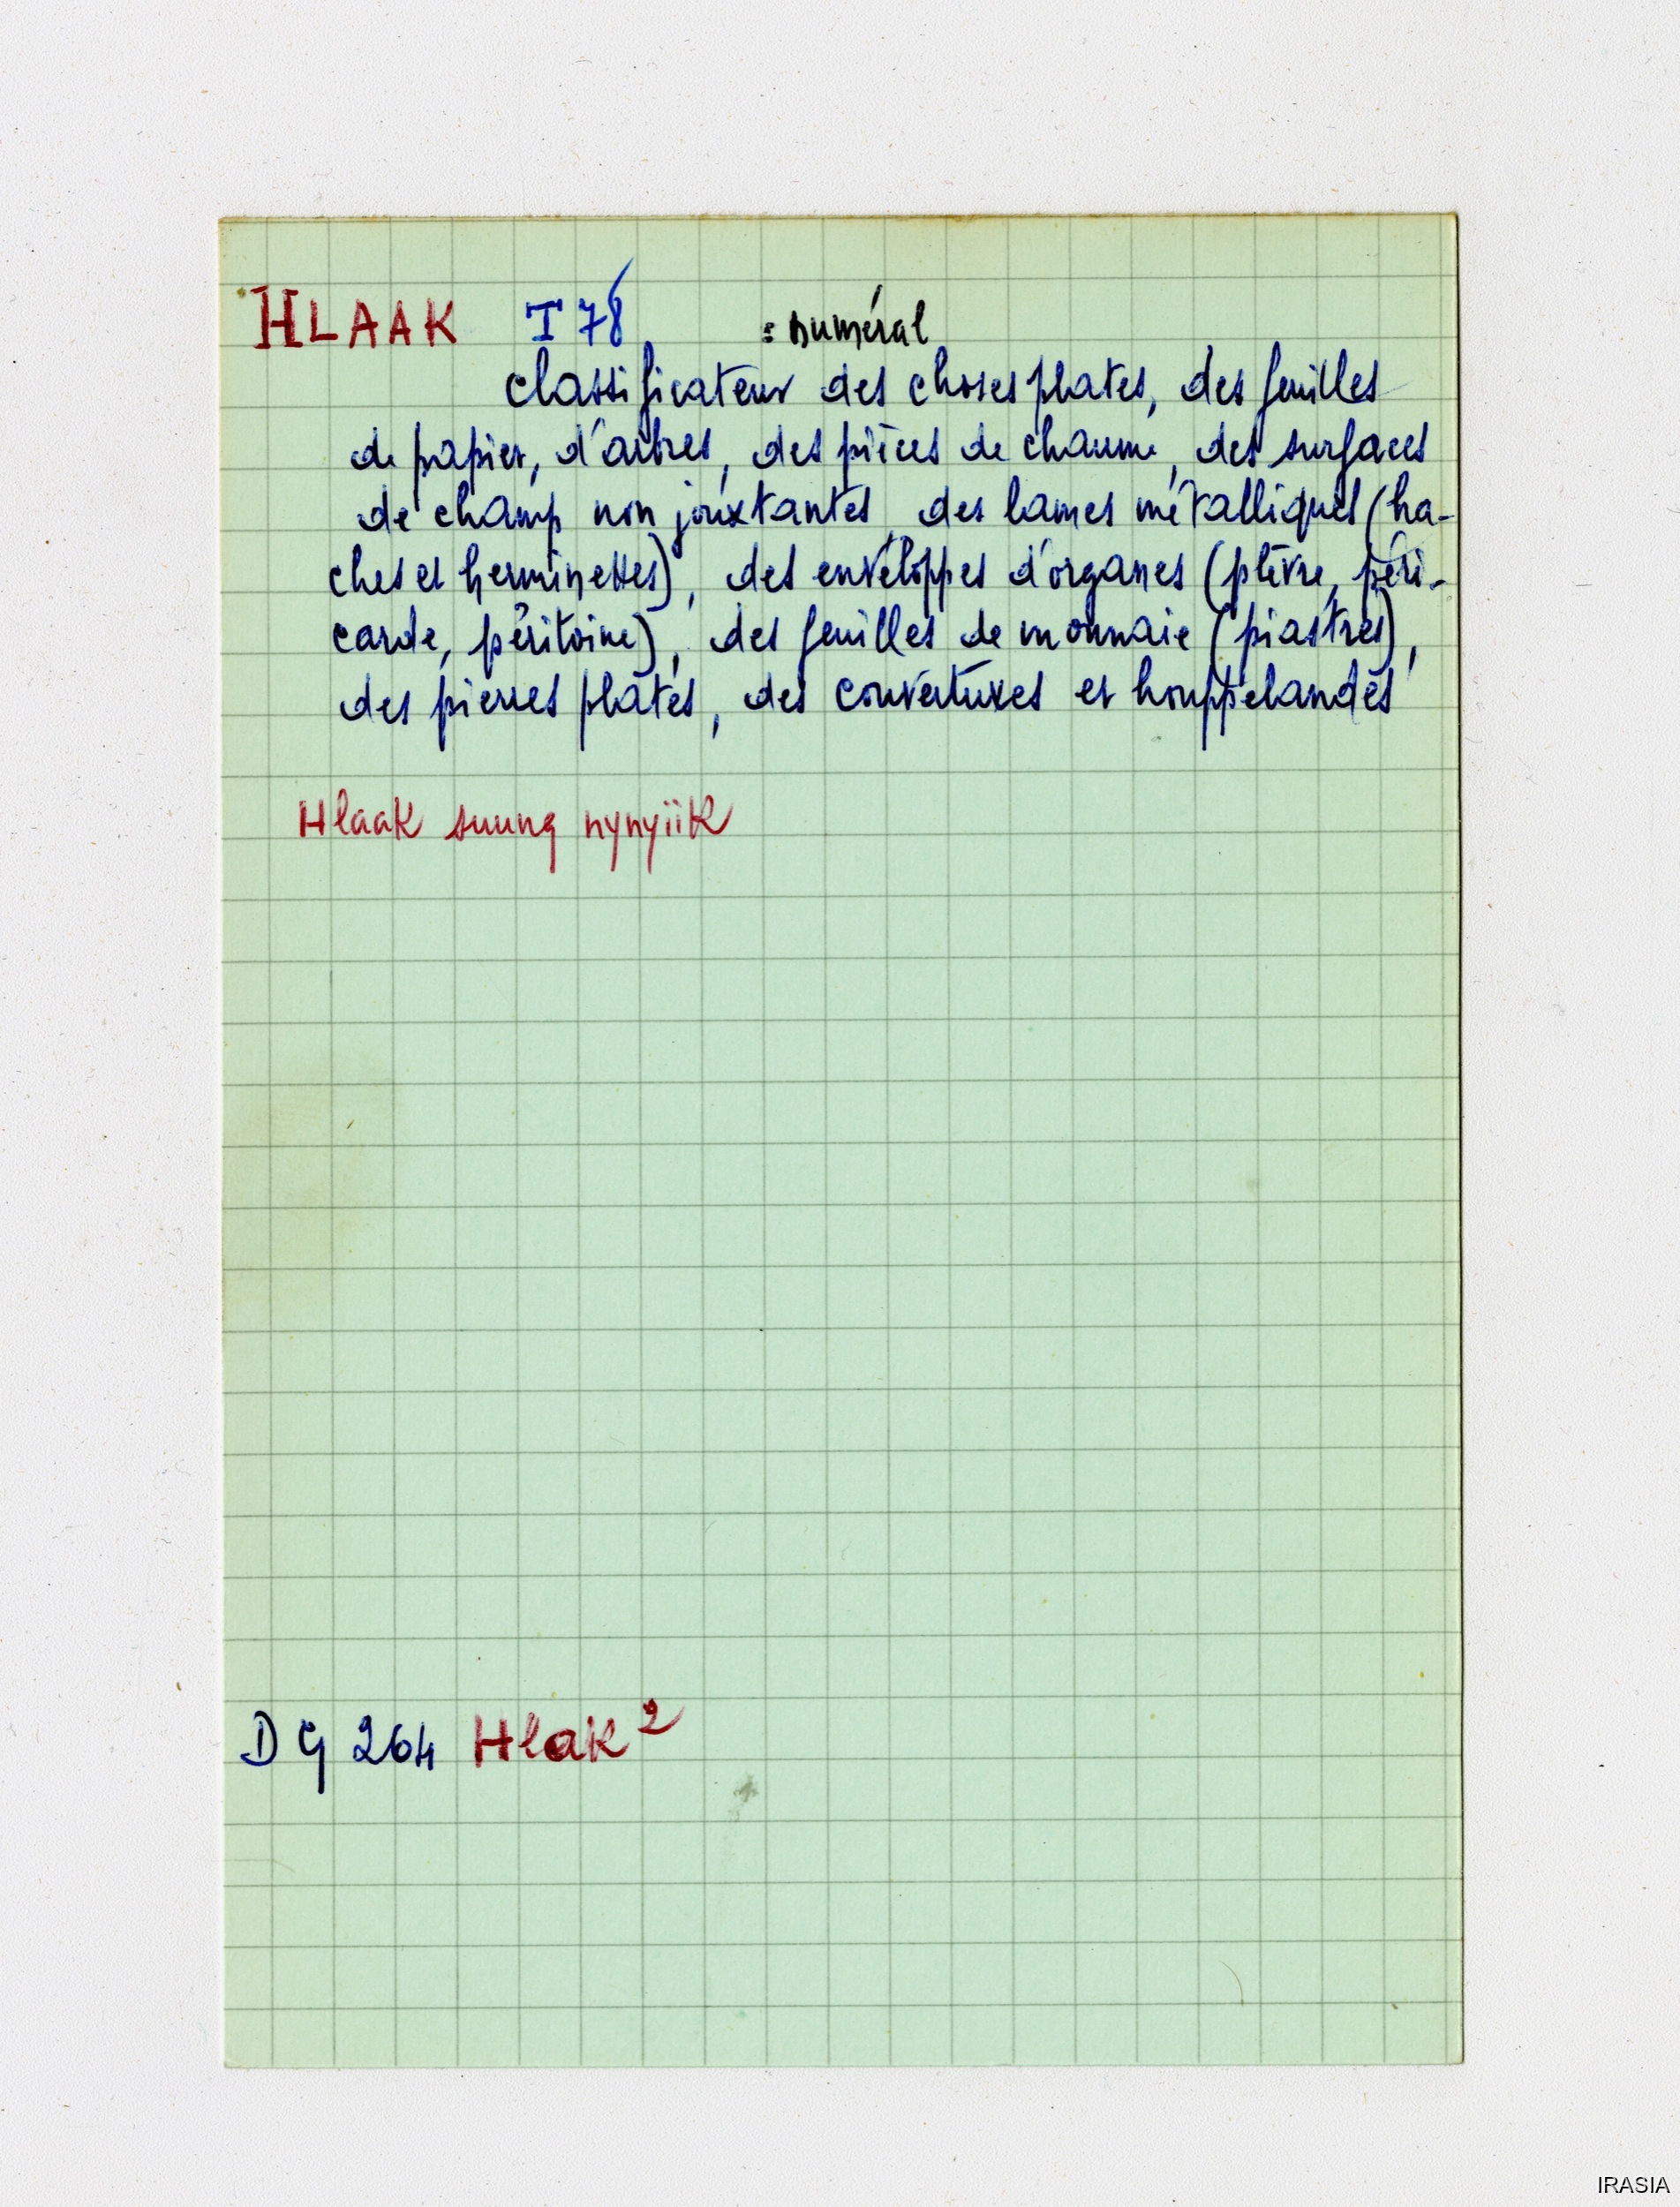 HLAAK I 78 : numéral
classificateur des choses plates, des feuilles
de papier, d'arbres, des pièces de chaume, des surfaces
de champ non jouxtantes, des lames métalliques (ha-
ches et herminettes), des enveloppes d'organes (plèvre, péri-
carde, péritoine), des feuilles de monnaie (piastres),
des pierres plates, des couvertures et houppelandes
Hlaak suung nynyiik
DG 264 Hlak²
IRASIA